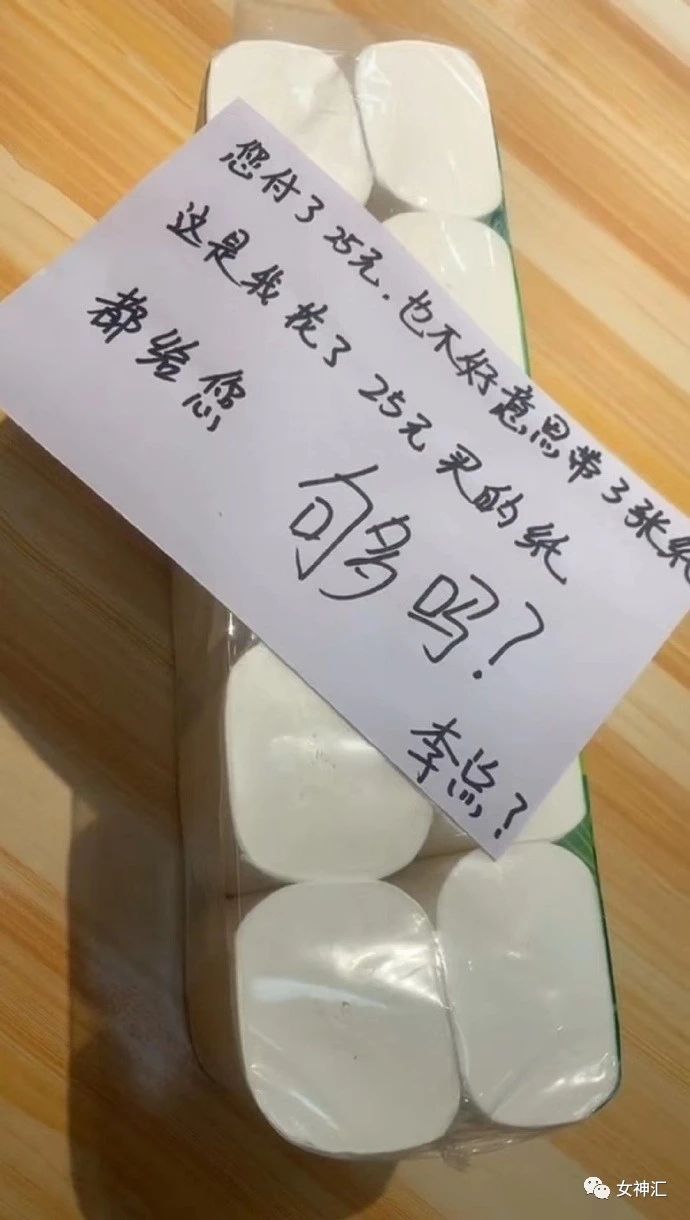 您付了25元.也不好意思带了张纸
这是我找了25元买的纸
都给您
够吗?
李总?
女神汇